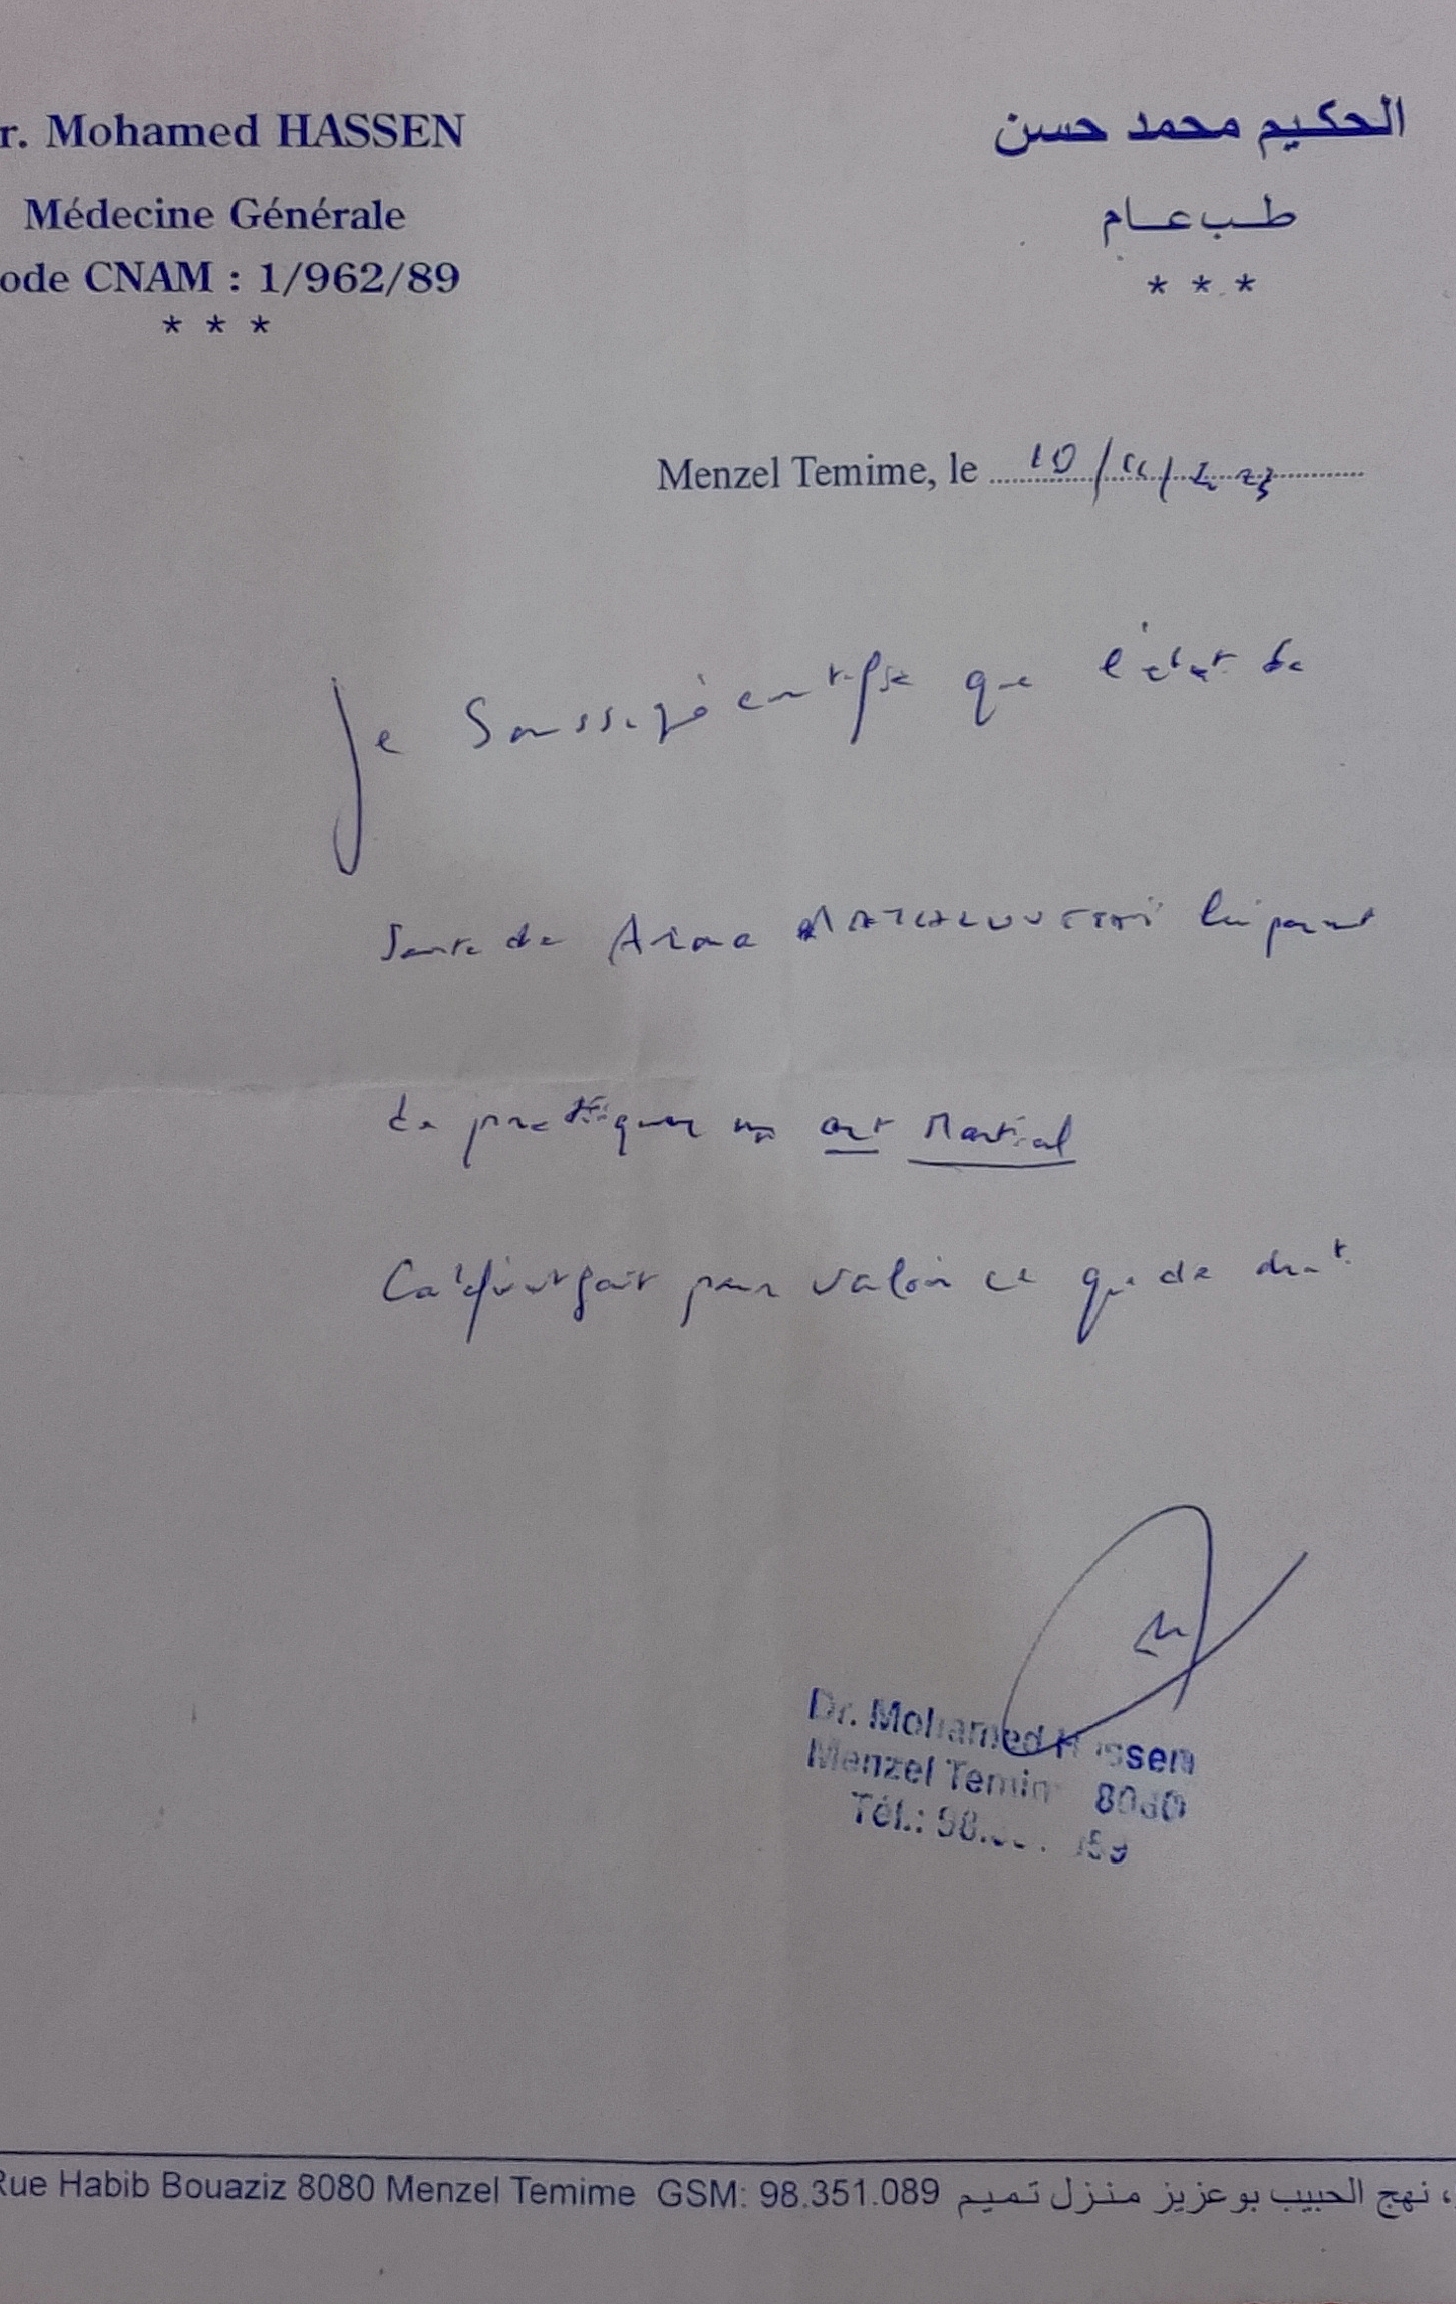 r. Mohamed HASSEN
Médecine Générale
ode CNAM : 1/962/89
* * *
الحكيم محمد حسن
طب عام
* * *
Menzel Temime, le 10/11/2023
Je soussigné certifie que l'état de
santé de lui permet
de pratiquer un art Martial
fait pour valoir ce que de droit.
Dr. Mohamed Hassen
Menzel Temime 8080
Tél.: 98.
Rue Habib Bouaziz 8080 Menzel Temime GSM: 98.351.089 نهج الحبيب بوعزيز منزل تميم ،